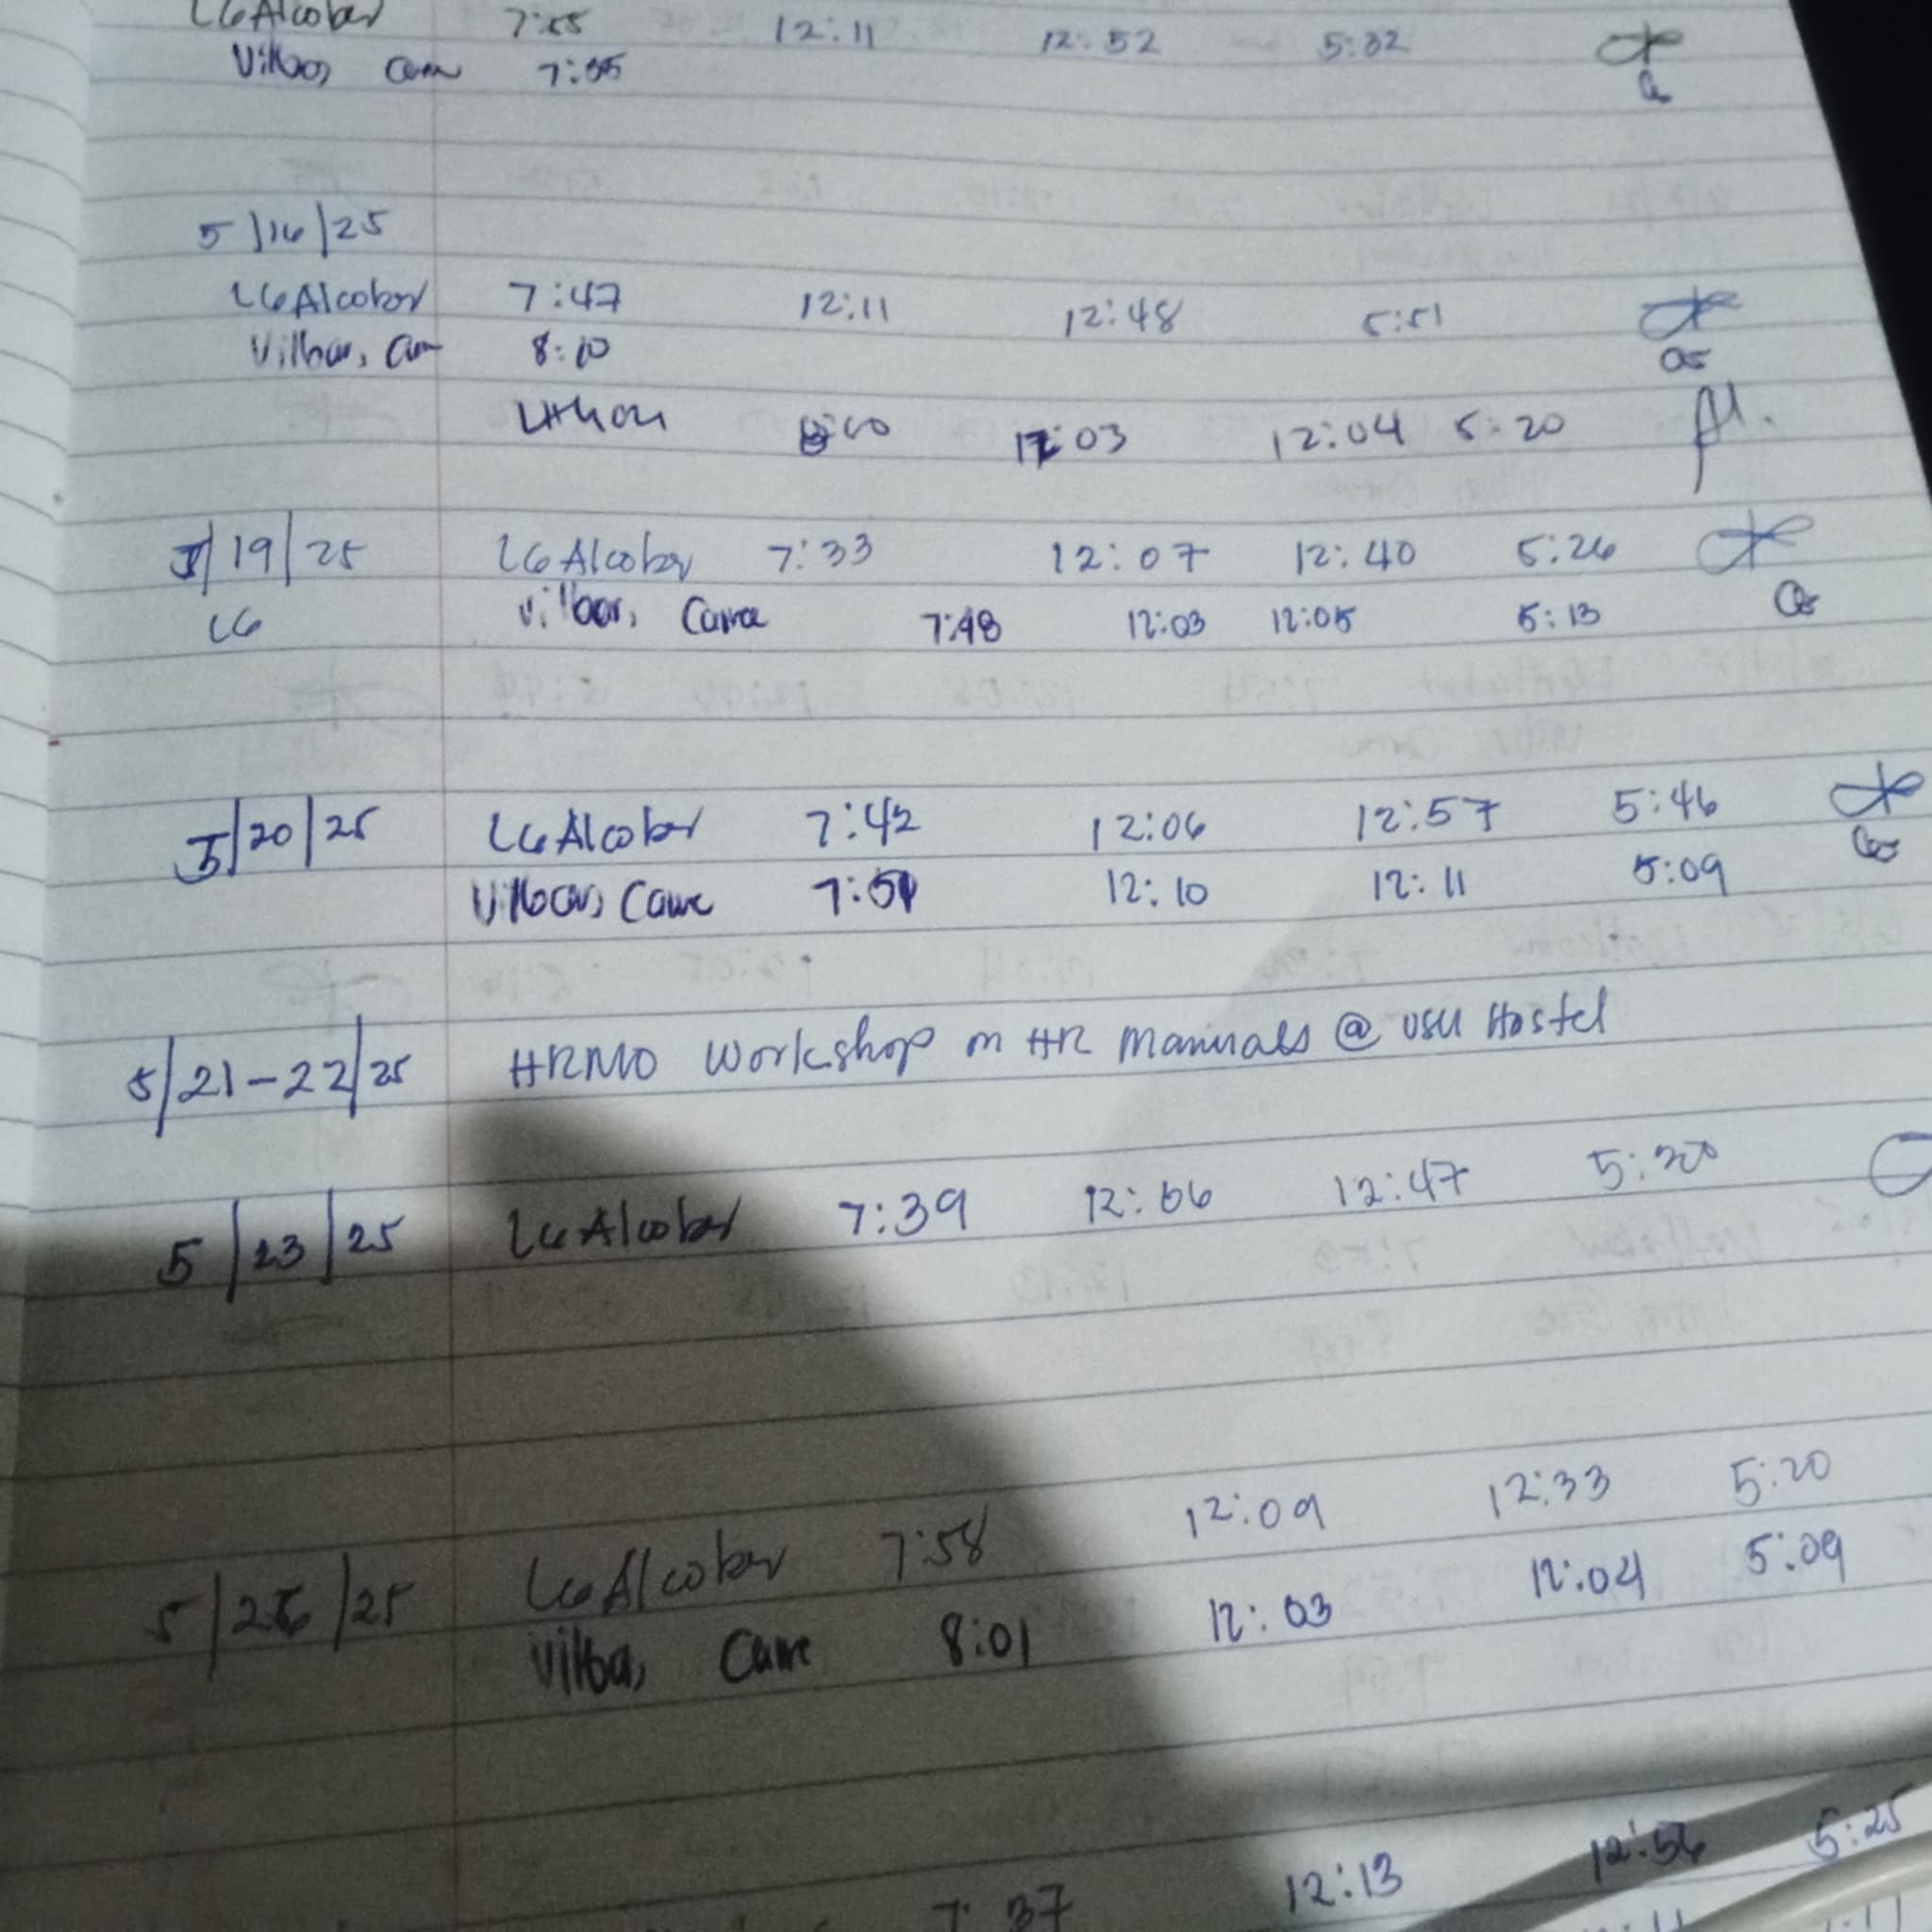 LGAlcober 7:55 12:11 12:52 5:32
Villar, 7:55
5/16/25
LGAlcober 7:47 12:11 12:48 5:51
8:10
12:03 12:04 5:20
5/19/25 LGAlcober 7:33 12:07 12:40 5:26
LG 7:48 12:03 12:05 5:13
5/20/25 LGAlcober 7:42 12:06 12:57 5:46
7:51 12:10 12:11 5:09
5/21-22/25 HRMO Workshop on HR Manuals @ VSU Hostel
5/23/25 LGAlcober 7:39 12:06 12:47 5:30
5/26/25 LGAlcober 7:58 12:09 12:33 5:20
8:01 12:03 12:04 5:09
7:37 12:13 12:56 5:25